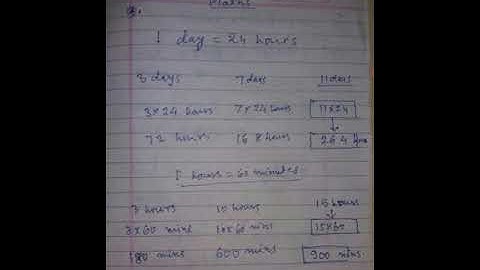 Maths
1 day = 24 hours
3 days 7 days 11 days
3×24 hours 7×24 hours 11×24
72 hours 168 hours 264 hrs
1 hours = 60 minutes
3 hours 10 hours 15 hours
3×60 mins 10×60 mins 15×60
180 mins 600 mins 900 mins